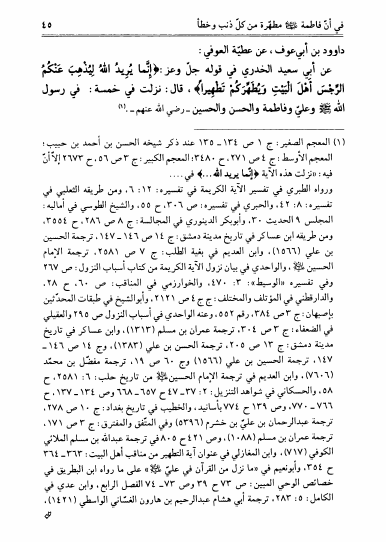 في أنّ فاطمة ﷺ مطهّرة من كلّ ذنب وخطأ ٤٥
داوود بن أبي عوف، عن عطيّة العوفي:
عن أبي سعيد الخدري في قوله جلّ وعز: ﴿إِنَّما يُرِيدُ اللهُ لِيُذْهِبَ عَنْكُمُ
الرِّجْسَ أَهْلَ الْبَيْتِ وَيُطَهِّرَكُمْ تَطْهِيراً﴾ ، قال: نزلت في خمسة: في رسول
الله ﷺ وعليّ وفاطمة والحسن والحسين ـ رضي الله عنهم ـ. (١)
(١) المعجم الصغير: ج ١ ص ١٣٤ ـ ١٣٥ عند ذكر شيخه الحسن بن أحمد بن حبيب؛
المعجم الأوسط: ج ٤ ص ٢٧١، ح ٣٤٨٠؛ المعجم الكبير: ج ٣ ص ٥٦، ح ٢٦٧٣ إلّا أنّ
فيه: «نزلت هذه الآية ﴿إنّما يريد الله ...﴾ في ....
ورواه الطبري في تفسير الآية الكريمة في تفسيره: ١٢: ٦، ومن طريقه الثعلبي في
تفسيره: ٨: ٤٢، والحبري في تفسيره: ص ٣٠٦، ح ٥٥، والشيخ الطوسي في أماليه:
المجلس ٩ الحديث ٣٠، وأبوبكر الدينوري في المجالسة: ج ٨ ص ٢٨٦، ح ٣٥٥٤،
ومن طريقه ابن عساكر في تاريخ مدينة دمشق: ج ١٤ ص ١٤٦ ـ ١٤٧، ترجمة الحسين
بن علي (١٥٦٦)، وابن العديم في بغية الطلب: ج ٧ ص ٢٥٨١، ترجمة الإمام
الحسين، والواحدي في بيان نزول الآية الكريمة من كتاب أسباب النزول: ص ٢٦٧
وفي تفسيره «الوسيط»: ٣: ٤٧٠، والخوارزمي في المناقب: ص ٦٠، ح ٢٨،
والدارقطني في المؤتلف والمختلف: ج ٤ ص ٢١٢١، وأبوالشيخ في طبقات المحدّثين
بإصبهان: ج ٣ ص ٣٨٤، رقم ٥٥٢، وعنه الواحدي في أسباب النزول: ص ٢٩٥ والعقيلي
في الضعفاء: ج ٣ ص ٣٠٤، ترجمة عمران بن مسلم (١٣١٣)، وابن عساكر في تاريخ
مدينة دمشق: ج ١٣ ص ٢٠٥، ترجمة الحسن بن علي (١٣٨٣)، وج ١٤ ص ١٤٦ ـ
١٤٧، ترجمة الحسين بن علي (١٥٦٦) وج ٦٠ ص ١٩، ترجمة مفضّل بن محمّد
(٧٦٠٦)، وابن العديم في ترجمة الإمام الحسين من تاريخ حلب: ٦: ٢٥٨١، ح
٥٨، والحسكاني في شواهد التنزيل: ٢: ٣٧ ـ ٤٧ ح ٦٥٧ ـ ٦٦٨ وص ١٣٤ ـ ١٣٧، ح
٧٦٦ ـ ٧٧٠، وص ١٣٩ ح ٧٧٤ بأسانيد، والخطيب في تاريخ بغداد: ج ١٠ ص ٢٧٨،
ترجمة عبدالرحمان بن عليّ بن خشرم (٥٣٩٦) وفي المتّفق والمفترق: ج ٣ ص ١٧١،
ترجمة عمران بن مسلم (١٠٨٨)، وص ٤٢١ ح ٨٠٥ في ترجمة عبدالله بن مسلم الملائي
الكوفي (٧١٧)، وابن المغازلي في عنوان آية التطهير من مناقب أهل البيت: ٣٦٣ ـ ٣٦٤
ح ٣٥٤، وأبونعيم في «ما نزل من القرآن في عليّ» على ما رواه ابن البطريق في
خصائص الوحي المبين: ص ٧٣ ح ٣٩ وص ٧٣ ـ ٧٤ الفصل الرابع، وابن عدي في
الكامل: ٥: ٢٨٣، ترجمة أبي هشام عبدالرحيم بن هارون الغسّاني الواسطي (١٤٢١)،